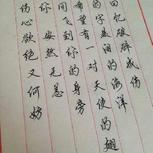 回忆破碎成伤
的泪的海洋
希望有一对天使的翅
间飞到你的身旁
安然无恙
伤心欲绝又何妨